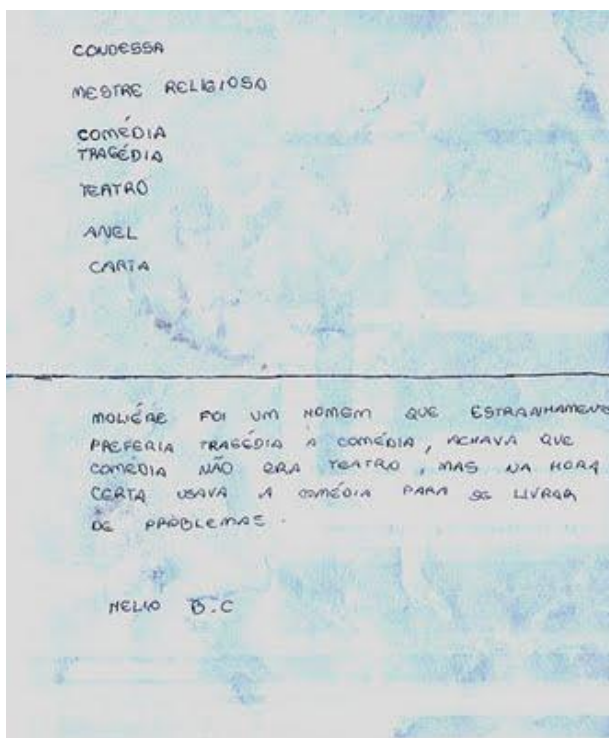 CONDESSA
MESTRE RELIGIOSO
COMÉDIA
TRAGÉDIA
TEATRO
ANEL
CARTA
MOLIÉRE FOI UM HOMEM QUE ESTRANHAMENTE
PREFERIA TRAGÉDIA A COMÉDIA, ACHAVA QUE
COMÉDIA NÃO ERA TEATRO, MAS NA HORA
CERTA USAVA A COMÉDIA PARA SE LIVRAR
DE PROBLEMAS.
HELIO B.C